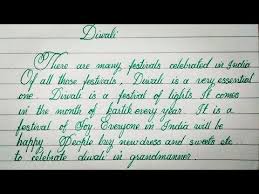 Diwali
There are many festivals celebrated in India
Of all those festivals, Diwali is a very essential
one. Diwali is a festival of lights It comes
in the month of kartik every year. It is a
festival of Joy Everyone in India will be
happy People buy new dress and sweets etc..
to celebrate diwali in grandmanner